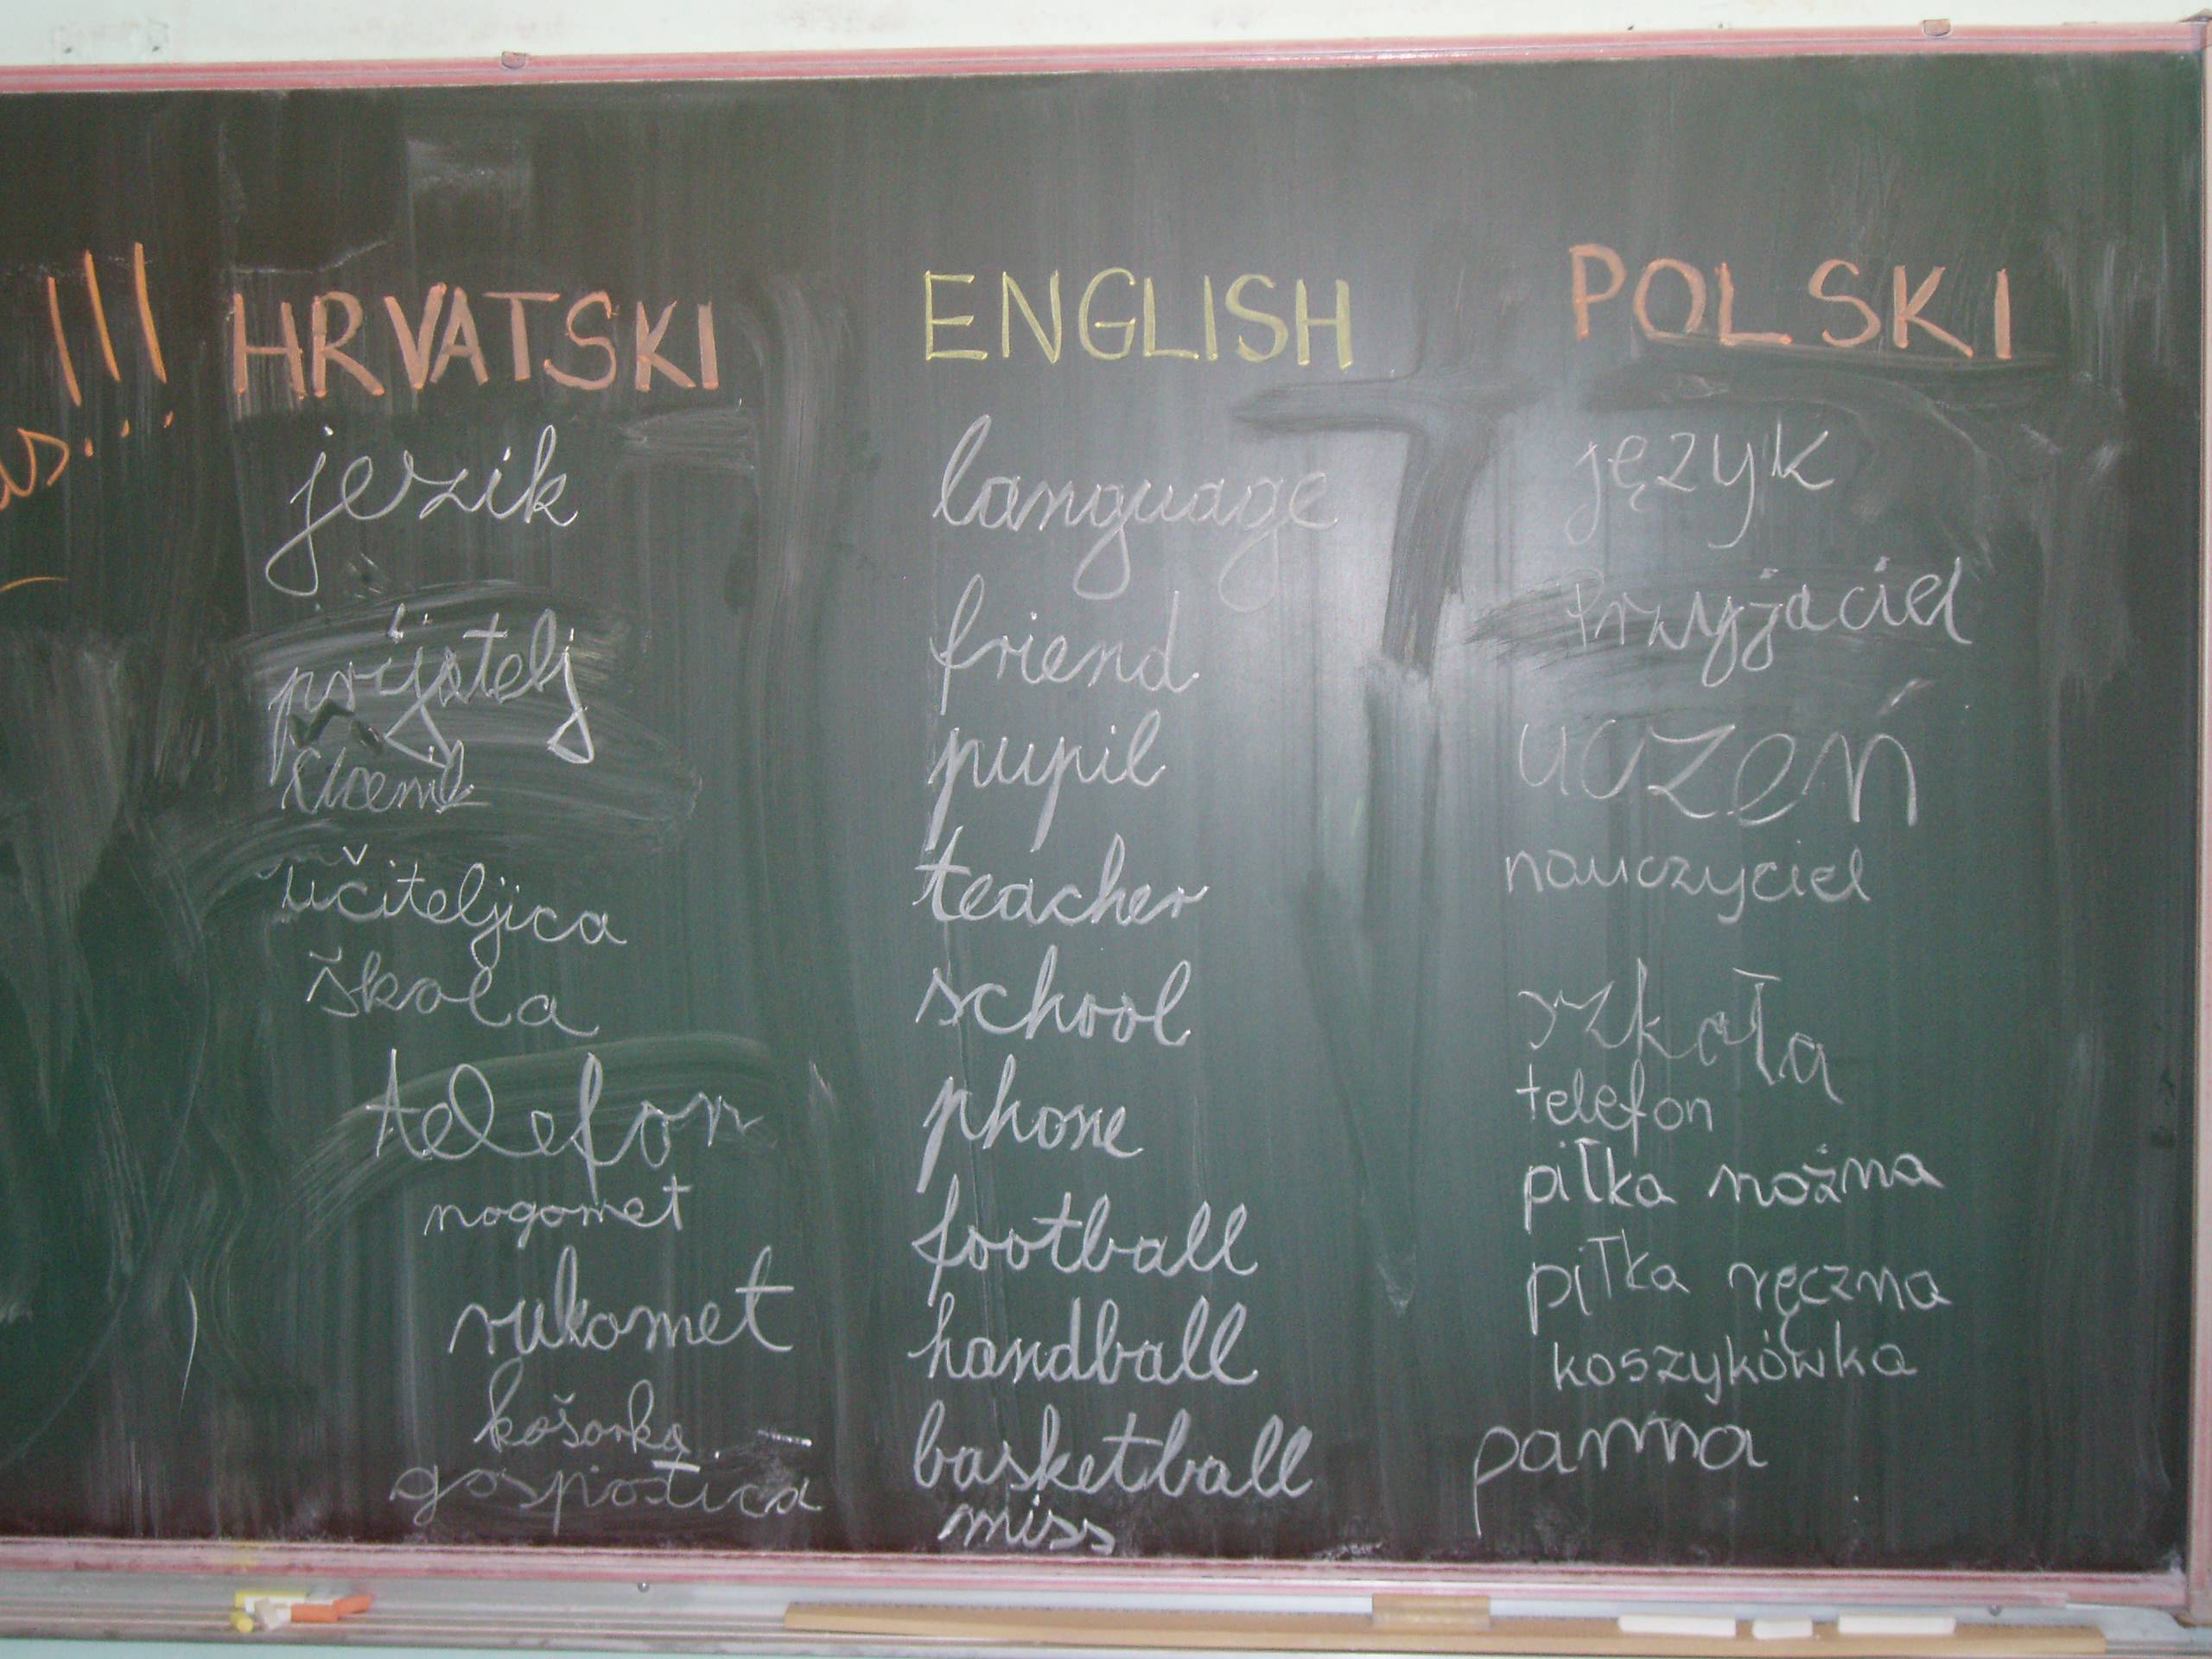 !!!
HRVATSKI
jezik
prijatelj
učiteljica
škola
telefon
nogomet
rukomet
košarka
gospođica
ENGLISH
language
friend
pupil
teacher
school
phone
football
handball
basketball
miss
POLSKI
język
Przyjaciel
uczeń
nauczyciel
szkoła
telefon
piłka nożna
piłka ręczna
koszykówka
panna